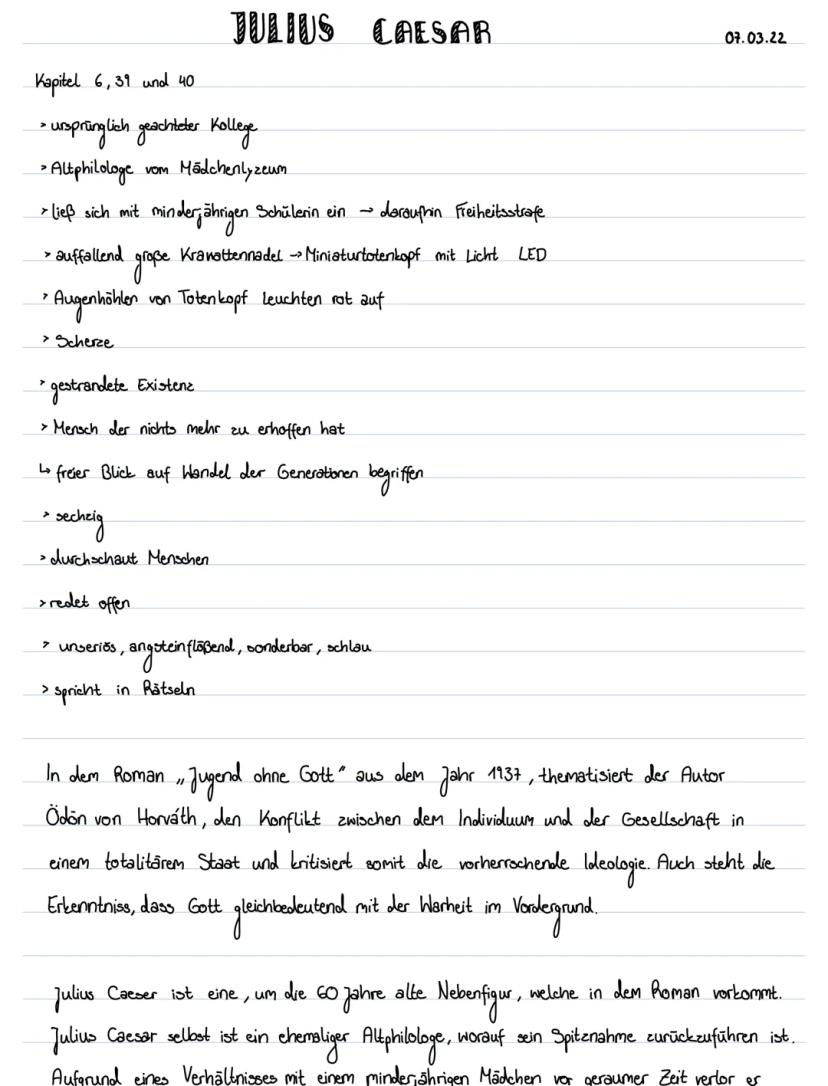 JULIUS CAESAR
07.03.22
Kapitel 6, 39 und 40
> ursprünglich geachteter Kollege
> Altphilologe vom Mädchenlyzeum
> ließ sich mit minderjährigen Schülerin ein → daraufhin Freiheitsstrafe
> auffallend große Krawattennadel → Miniaturtotenkopf mit Licht LED
> Augenhöhlen von Totenkopf leuchten rot auf
> Scherze
> gestrandete Existenz
> Mensch der nichts mehr zu erhoffen hat
↳ freier Blick auf Wandel der Generationen begriffen
> sechzig
> durchschaut Menschen
> redet offen
> unseriös, angsteinflößend, sonderbar, schlau
> spricht in Rätseln
In dem Roman „Jugend ohne Gott" aus dem Jahr 1937, thematisiert der Autor
Ödön von Horváth, den Konflikt zwischen dem Individuum und der Gesellschaft in
einem totalitärem Staat und kritisiert somit die vorherrschende Ideologie. Auch steht die
Erkenntniss, dass Gott gleichbedeutend mit der Warheit im Vordergrund.
Julius Caeser ist eine, um die 60 Jahre alte Nebenfigur, welche in dem Roman vorkommt.
Julius Caesar selbst ist ein ehemaliger Altphilologe, worauf sein Spitznahme zurückzuführen ist.
Aufgrund eines Verhältnisses mit einem minderjährigen Mädchen vor geraumer Zeit verlor er